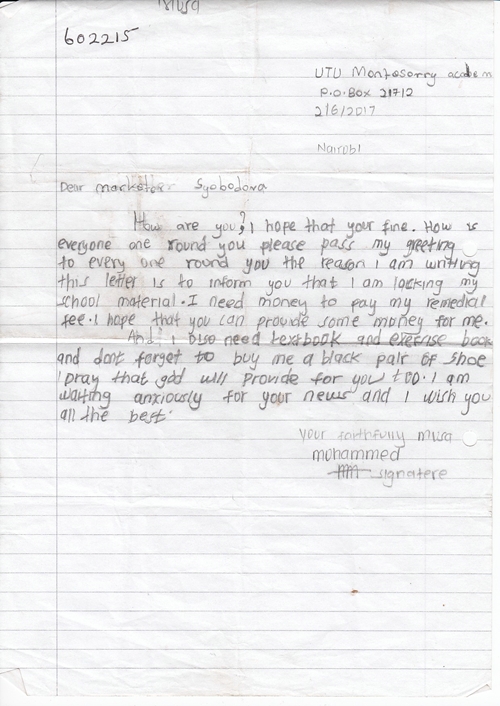 602215
UTU Montesorry
P.O.Box 21712
2/6/2017
Nairobi
Dear Syobodova
How are you? I hope that your fine. How is
everyone one round you please pass my greeting
to every one round you the reason I am writing
this letter is to inform you that I am lacking my
school material. I need money to pay my remedial
fee. I hope that you can provide some money for me.
And i also need textbook and exercise book
and dont forget to buy me a black pair of shoe
I pray that god will provide for you too. I am
waiting anxiously for your news and I wish you
all the best.
your faithfully Musa
mohammed
signatere